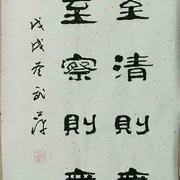 至清則無
至察則無
戊戌 武